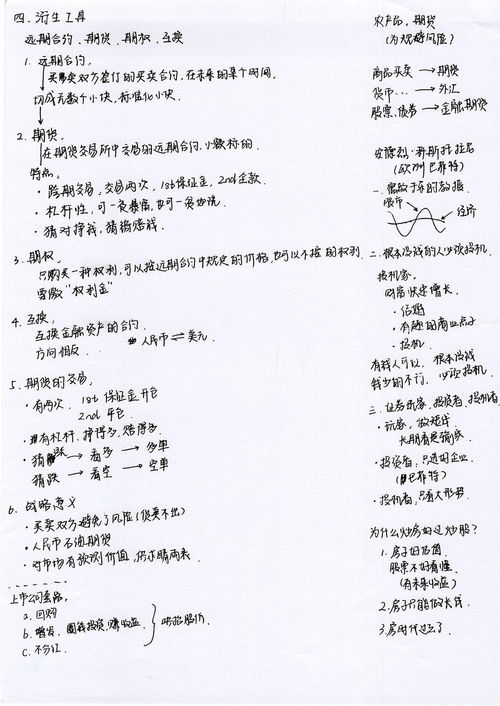 四. 衍生工具
远期合约、期货、期权、互换
1. 远期合约.
买卖双方签订的买卖合约, 在未来的某个时间.
切成无数个小块, 标准化小块.
2. 期货.
在期货交易所中交易的远期合约.
特点:
· 跨期交易: 交易两次, 1st 保证金, 2nd 全款.
· 杠杆性, 可一夜暴富, 也可一贫如洗.
· 猜对挣钱, 猜错赔钱.
3. 期权.
只购买一种权利, 可以按远期合约中规定的价格, 也可以不按的权利
需缴 "权利金"
4. 互换.
互换金融资产的合约.
方向相反. 人民币 ⇌ 美元.
5. 期货的交易.
· 有两次. 1st 保证金 开仓
2nd 平仓.
· 有杠杆. 挣得多, 赔得多.
· 猜涨 → 看多 → 多单
· 猜跌 → 看空 → 空单
6. 战略意义
· 买卖双方避免了风险
· 人民币石油期货
· 对市场有预测价值,
上市公司
a. 回购
b. 增发.
c. 不分红.
股价.
农产品, 期货
(为规避风险)
商品买卖 → 期货
货币... → 外汇
股票, 债券 → 金融期货
安德烈·科斯托拉尼
(欧洲巴菲特)
一.
股市
经济
二. 根本没钱的人必须投机.
投机家.
财富快速增长.
· 结婚
· 有趣的商业点子
· 投机.
有钱人可以, 根本没钱
钱少的不行, 必须投机.
三. 证券玩家, 投资者, 投机者
· 玩家, 做短线
长期看是输家.
· 投资者, 只选好企业.
(巴菲特)
· 投机者, 只看大形势.
为什么炒房的过炒股?
1. 房子好估值
股票不好看懂.
(有未来收益)
2. 房子只能做长线.
3. 房时代过去了.